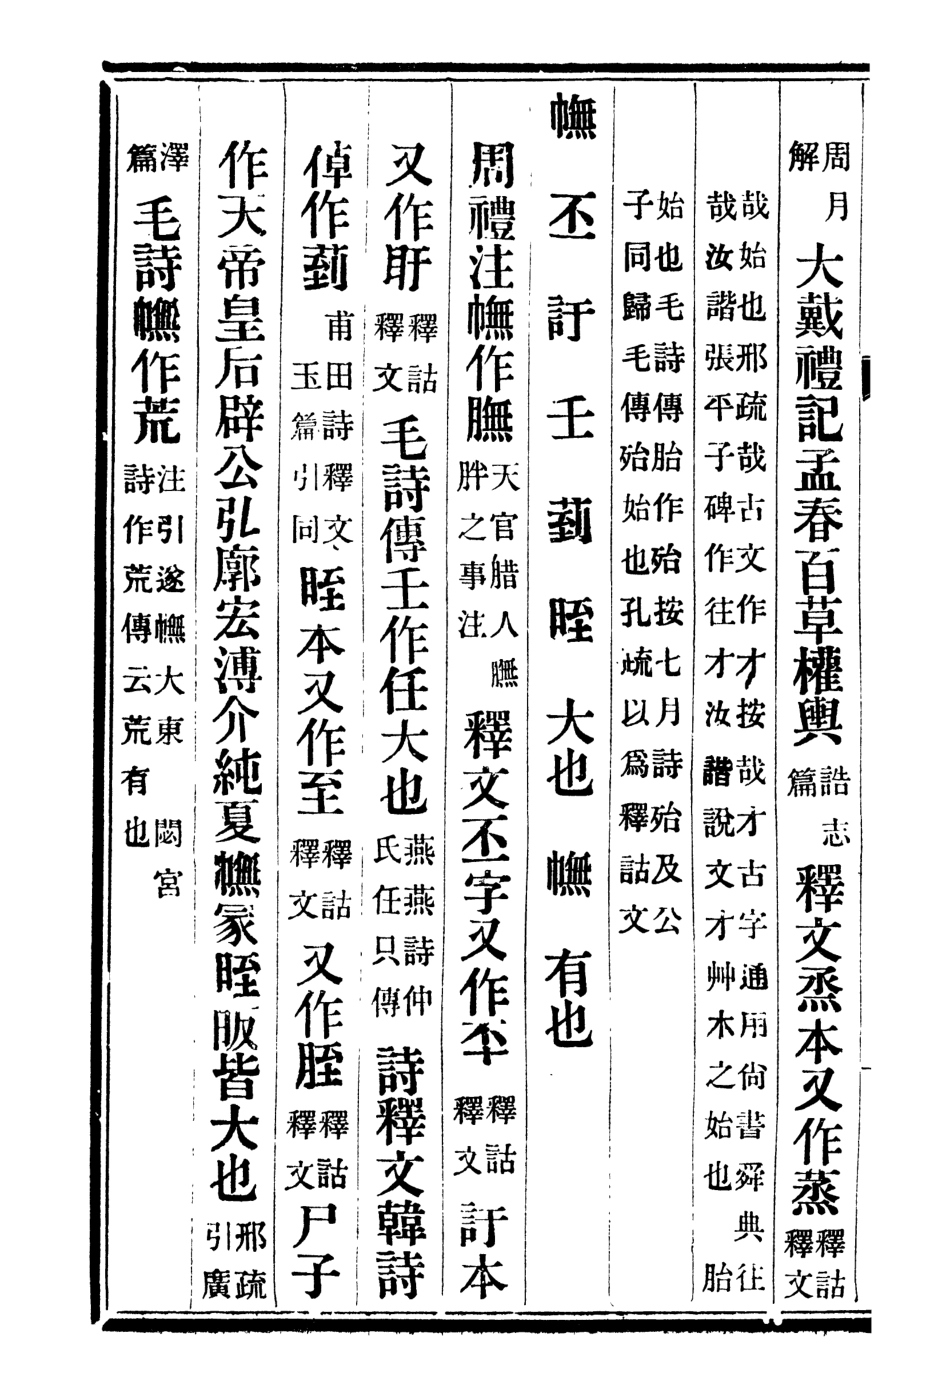 周月解大戴禮記孟春百草權輿誥志篇釋文烝本又作蒸釋詁釋文
哉始也邢疏哉古文作才按哉才古字通用尙書舜典往
哉汝諧張平子碑作往才汝諧說文才艸木之始也胎
始也毛詩傳胎作殆按七月詩殆及公
子同歸毛傳殆始也孔疏以爲釋詁文
幠丕訏壬菿晊大也幠有也
周禮注幠作膴天官腊人膴胖之事注釋文丕字又作𠀾釋詁釋文訏本
又作盱釋詁釋文毛詩傳壬作任大也燕燕詩仲氏任只傳詩釋文韓詩
倬作菿甫田詩釋文玉篇引同晊本又作至釋詁釋文又作胵釋詁釋文尸子
作天帝皇后辟公弘廓宏溥介純夏幠冢晊昄皆大也邢疏引廣
澤篇毛詩幠作荒注引遂幠大東閟宮詩作荒傳云荒有也